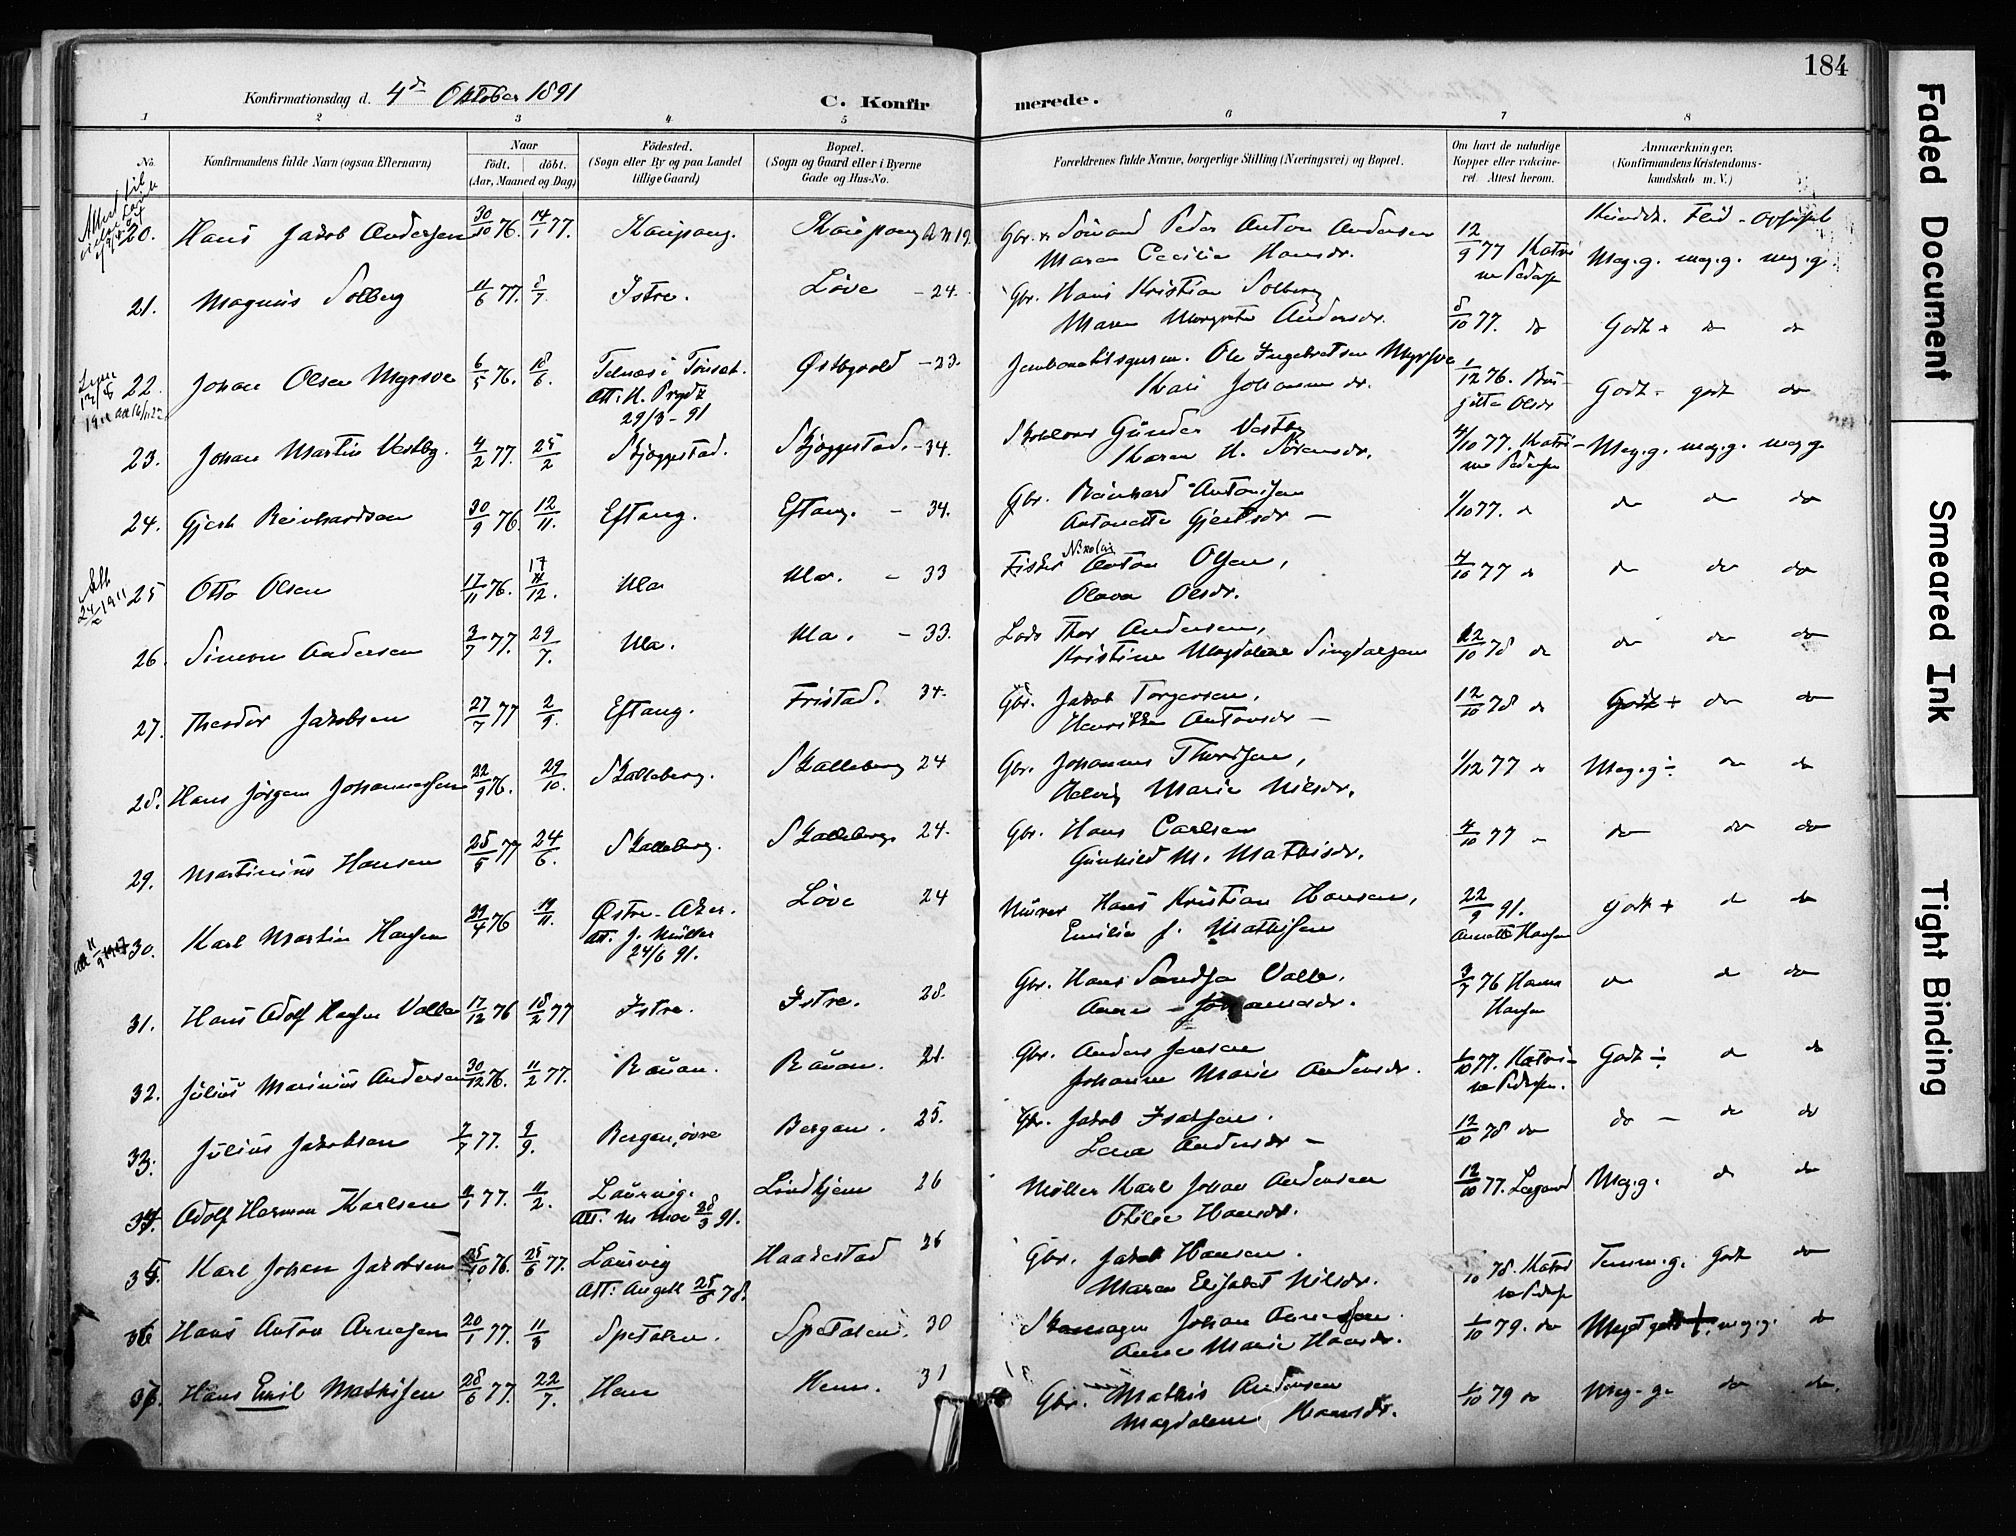 184
Konfirmationsdag d. 4de Oktober 1891
C. Konfirmerede.
1 2 3 4 5 6 7 8
No.
Konfirmandens fulde Navn (ogsaa Efternavn)
Naar
født. døbt.
(Aar, Maaned og Dag)
Fødested.
(Sogn eller By og paa Landet
tillige Gaard)
Bopæl.
(Sogn og Gaard eller i Byerne
Gade og Hus-No.
Forældrenes fulde Navne, borgerlige Stilling (Næringsvei) og Bopæl.
Om havt de naturlige
Kopper eller vakcine-
ret. Attest herom.
Anmærkninger.
(Konfirmandens Kristendoms-
kundskab m. V.)
Kundsk. Flid - Opførsel
20. Hans Jakob Andersen 30/10 76. 14/1 77. Kaupang. Kaupang 19 Gbr. Peder Anton Andersen 12/9 77 Katri- Meg.g. meg.g. meg.g.
Maren Cecilie Hansdr. ne Pedersen
21. Magnus Solberg 11/6 77. 8/7. Istre. Løve - 24. Gbr. Hans Kristian Solberg
Maren Margrete Andersdr. 8/10 77. do Godt + do do
22. Johan Olsen Myrsve 6/5 76. 18/6. Telnæs i Tønset. Østbyvold - 23. Jernbanebetjent. Ole Ingebretsen Myrsve 1/12 76. Bir- Godt - godt do
Att: H. Prydz Kari Johannesdr. gitte Olsdr
29/3 - 91
23. Johan Martin Vestby. 4/2 77. 25/2 Skjøggestad. Skjøggestad. - 34. Gunder Vestby 4/10 77. Katri- Meg.g. meg.g. meg.g
Karen H. Sørensdr. ne Pedersen
24. Gjert Reinhardsen 30/9 76. 12/11. Eftang. Eftang. - 34. Gbr. Reinhard Antonsen 1/10 77. do do do do
Antonette Gjertsdr -
25 Otto Olsen 17/11 76. 17/12. Ula Ula. - 33 Fisker Nikolai Anton Olsen, 4/10 77 do do do do
24/2 1911 Olava Olsdr.
26. Simon Andersen 3/7 77. 29/7. Ula. Ula. - 33. Lods Thor Andersen, 12/10 78 do do do do
Kristine Magdalene Singdalsen
27. Theodor Jakobsen 27/7 77 2/9. Eftang. Fristad. 34. Gbr. Jakob Torgersen, 12/10 78 do Godt + do do
Henrikke Antonsdr -
28. Hans Jørgen Johannessen 22/9 76. 29/10. Skalleberg. Skalleberg 24 Gbr. Johannes Thorsen, 1/12 77 do Meg.g ÷ do do
Hedvig Marie Nilsdr.
29. Martinius Hansen 25/5 77 24/6. Skalleberg. Skalleberg. 24. Gbr. Hans Carlsen 4/10 77 - do do do
Gunhild M. Mathisdr.
30. Karl Martin Hansen 29/4 76 19/11. Østre-Aker. Løve 24 Murer Hans Kristian Hansen, 22/9 91. Godt + do do
Att. J. Müller Emilie J. Mathisen Annette Hansen
24/6 91.
31. Hans Adolf Hansen Valle 17/12 76 18/2 77 Istre. Istre. 28. Gbr. Hans Valle, 3/7 76 Hanna do do do
Anne - Johannesdr. Hansen
32. Julius Marinius Andersen 30/12 76. 11/2 77. Rauan. Rauan. 21. Gbr. Anders Jensen 1/10 77. Katri- Godt ÷ do do
Johanne Marie Andersdr. ne Pedersen.
33. Julius Jakobsen 7/7 77. 9/9. Bergan, øvre Bergan. 25. Gbr. Jakob Isaksen. 12/10 78 do do - do do
Lena Andersdr -
34. Adolf Herman Karlsen 4/1 77. 11/2. Laurvig. Lindhjem 26 Møller Karl Johan Andersen 12/10 77. Meg.g. do do
Att: M Moe 28/3 91. Otilie Hansdr.
35. Karl Johan Jakobsen 25/10 76. 25/6 77. Laurvig Haakestad 26 Gbr. Jakob Hansen. 10 78. Katri Temm.g. Godt do
Att: Angell 25/8 78. Maren Elisabet Nilsdr. ne Pedersen
36 Hans Anton Arnesen 20/1 77. 11/3 Spetalen. Spetalen. 30 Skomager Johan Arnesen. 1/10 79. do Meget godt + . meg.g. do
Anne Marie Hansdr.
37. Hans Emil Mathisen 28/6 77. 22/7. Hem Hem. 31 Gbr. Mathis Andersen 1/10 79 do Meg.g. do do.
Magdalene Hansdr.
Faded Document
Smeared Ink
Tight Binding